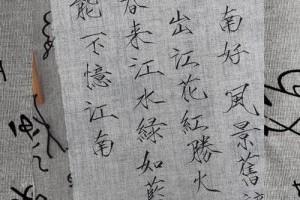 南好 風景舊
出江花紅勝火
春来江水緑如藍
能不憶江南